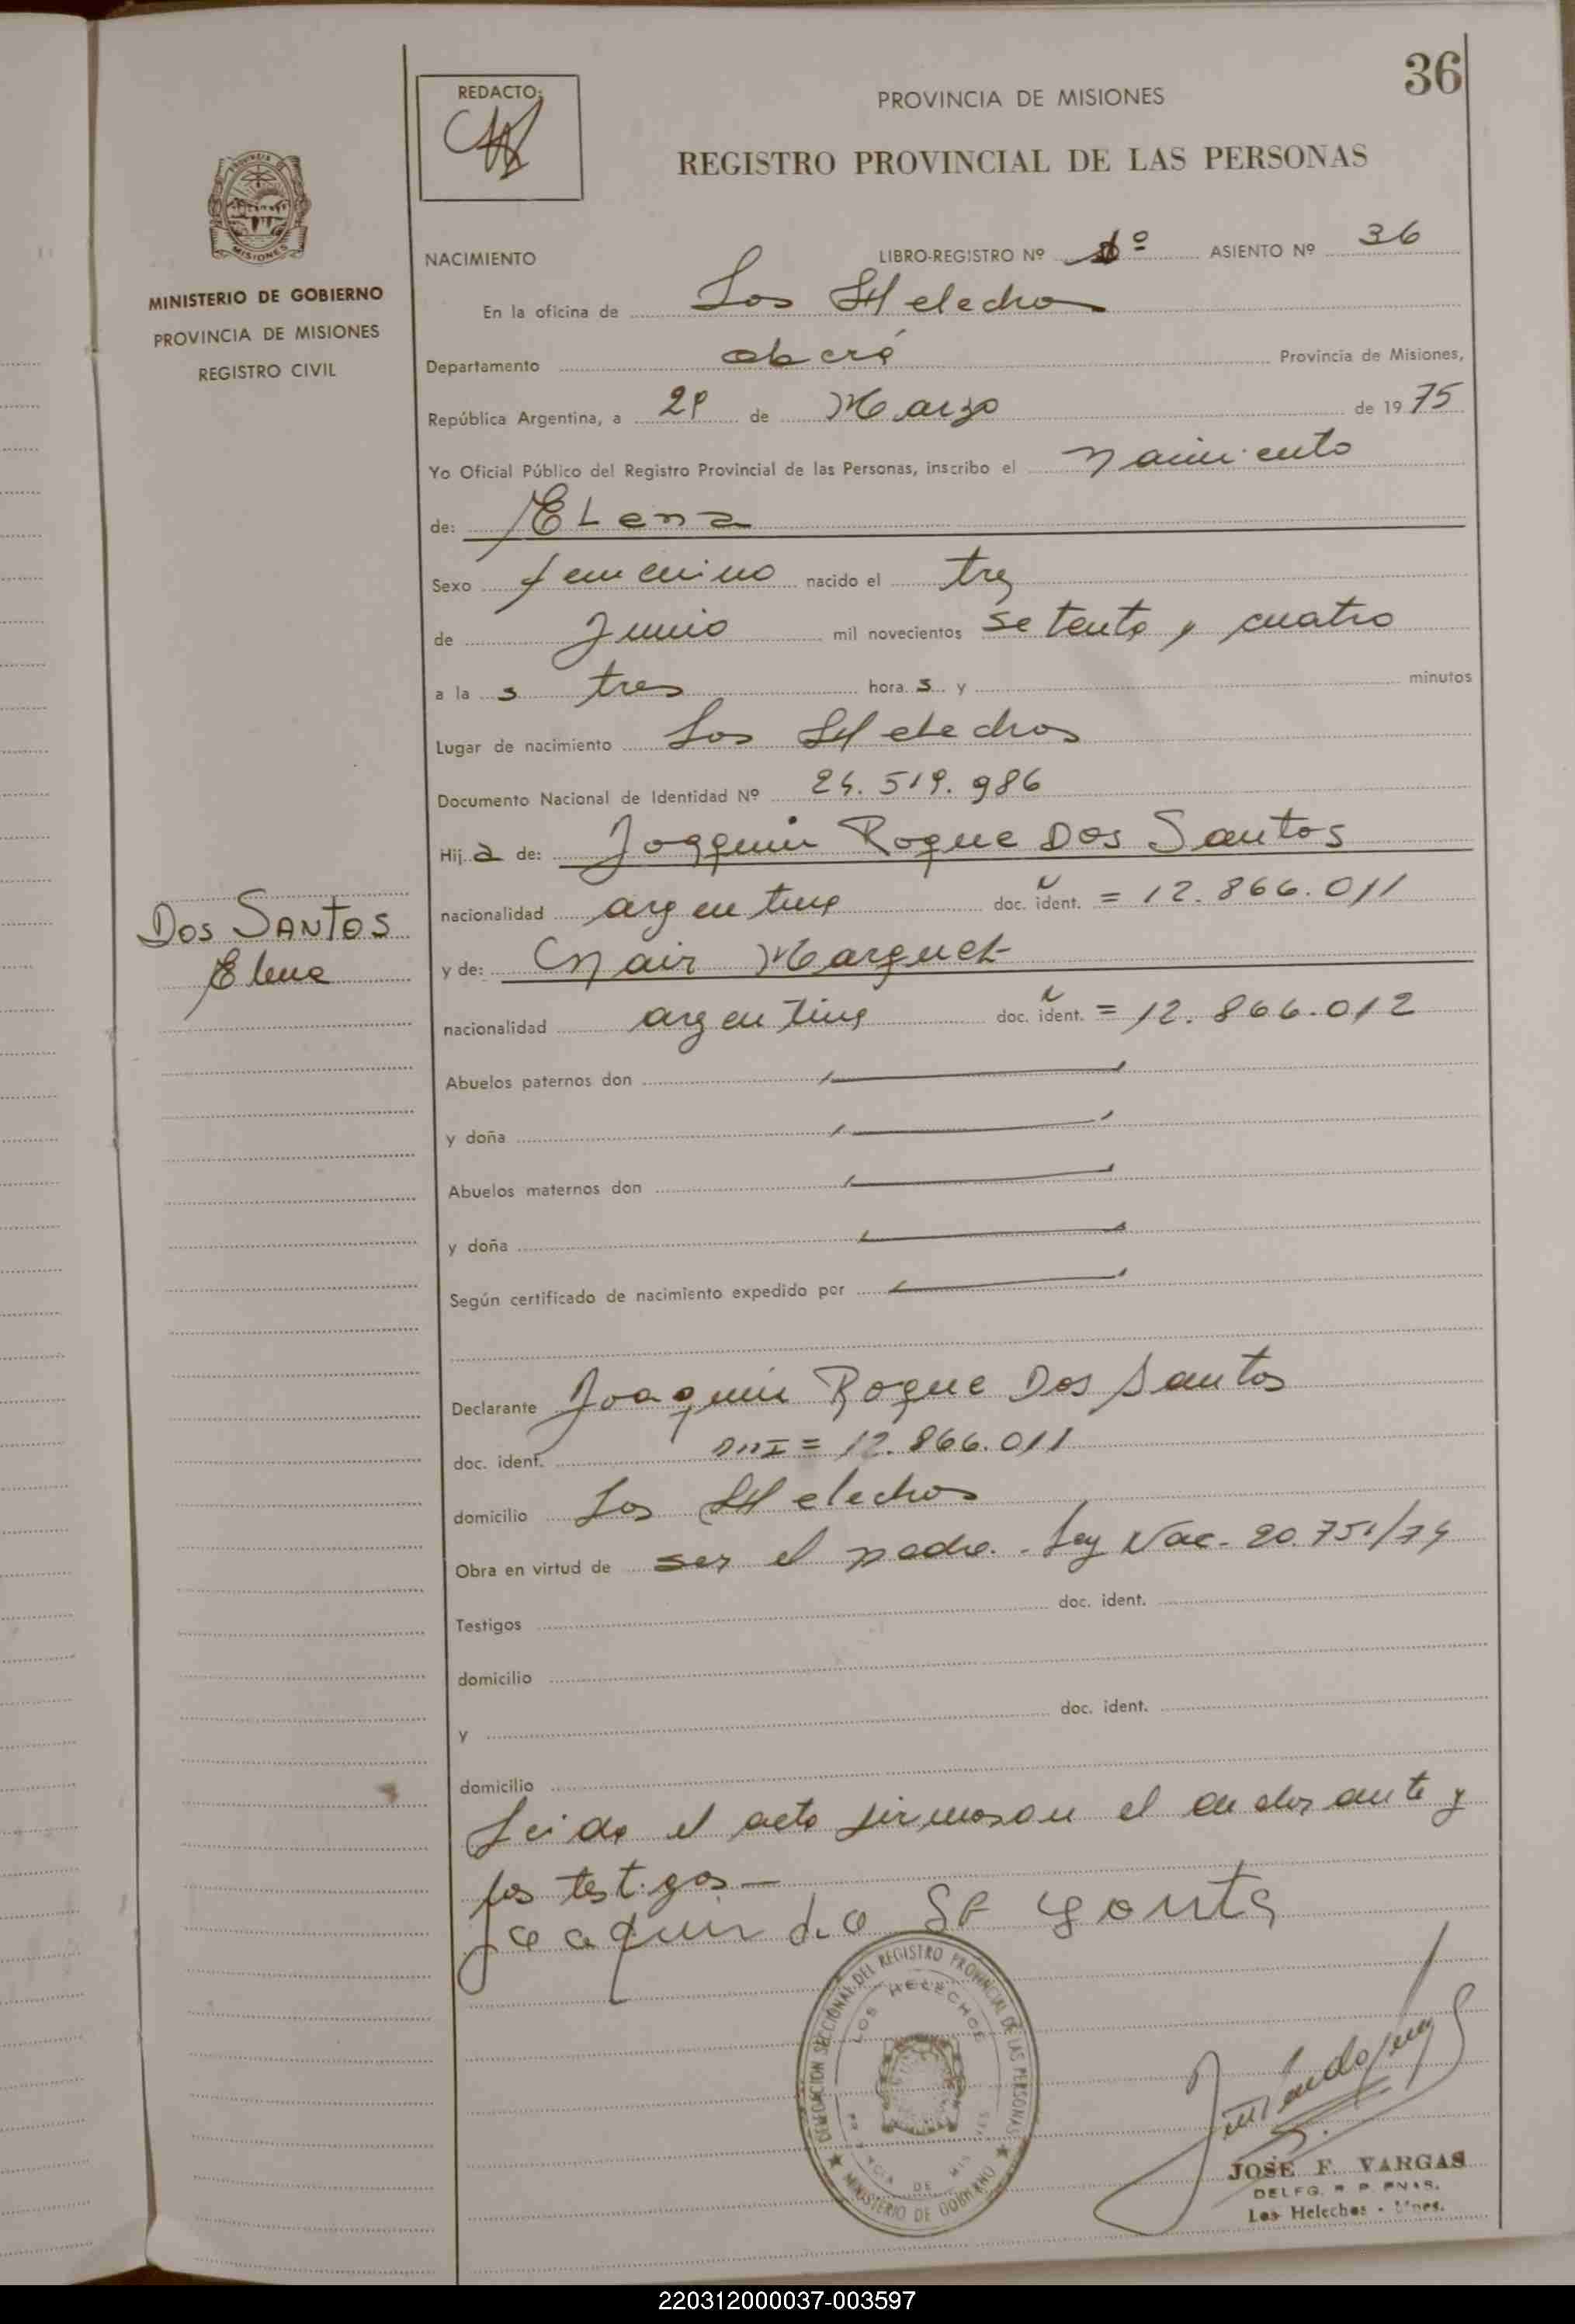 36
REDACTO:
PROVINCIA DE MISIONES
REGISTRO PROVINCIAL DE LAS PERSONAS
PROVINCIA DE MISIONES
MINISTERIO DE GOBIERNO
PROVINCIA DE MISIONES
REGISTRO CIVIL
NACIMIENTO LIBRO-REGISTRO Nº 1º ASIENTO Nº 36
En la oficina de Los Helechos
Departamento oberá Provincia de Misiones,
República Argentina, a de Marzo de 1975
Yo Oficial Público del Registro Provincial de las Personas, inscribo el nacimiento
de: Elena
Sexo femenino nacido el tres
de Junio mil novecientos setenta y cuatro
a la s tres hora s y minutos
Lugar de nacimiento Los Helechos
Documento Nacional de Identidad Nº 24.519.986
Hij a de: Joaquin Roque Dos Santos
nacionalidad argentina doc. ident. = 12.866.011
Dos Santos
Elena
y de: Nair Marquet
nacionalidad argentina doc. ident. = 12.866.012
Abuelos paternos don
y doña
Abuelos maternos don
y doña
Según certificado de nacimiento expedido por
Declarante Joaquin Roque Dos Santos
doc. ident. DNI = 12.866.011
domicilio Los Helechos
Obra en virtud de ser el padre. - Ley Nac. 20.751/74
Testigos doc. ident.
domicilio
y doc. ident.
domicilio
Leida el acta firmaron el declarante y
los testigos -
Joaquin
DELEGACION SECCIONAL DEL REGISTRO PROVINCIAL DE LAS PERSONAS
LOS HELECHOS
PROVINCIA DE MISIONES
★ MINISTERIO DE GOBIERNO ★
JOSE F. VARGAS
DELEG. R. P. PNAS.
Los Helechos - Mnes.
220312000037-003597